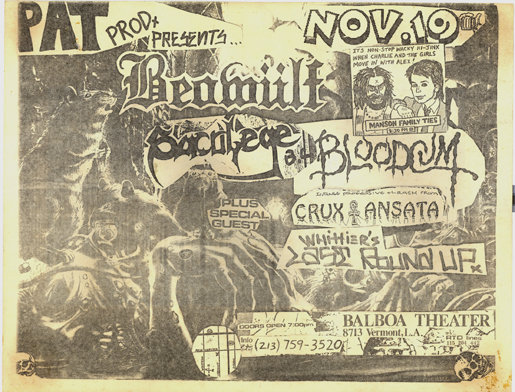 PAT PROD+
PRESENTS...
NOV. 19
Beowülf
IT'S NON-STOP WACKY HI-JINX
WHEN CHARLIE AND THE GIRLS
MOVE IN WITH ALEX!
MANSON FAMILY TIES
8:30 PM
Sacrilege
B.C.
BLOODCUM
THRASH FROM
CRUX ANSATA
PLUS
SPECIAL
GUEST
WHITTIER'S
LAST ROUND UP
DOORS OPEN 7:00pm
Info
(213) 759-3520
BALBOA THEATER
8713 Vermont, L.A.
RTD lines